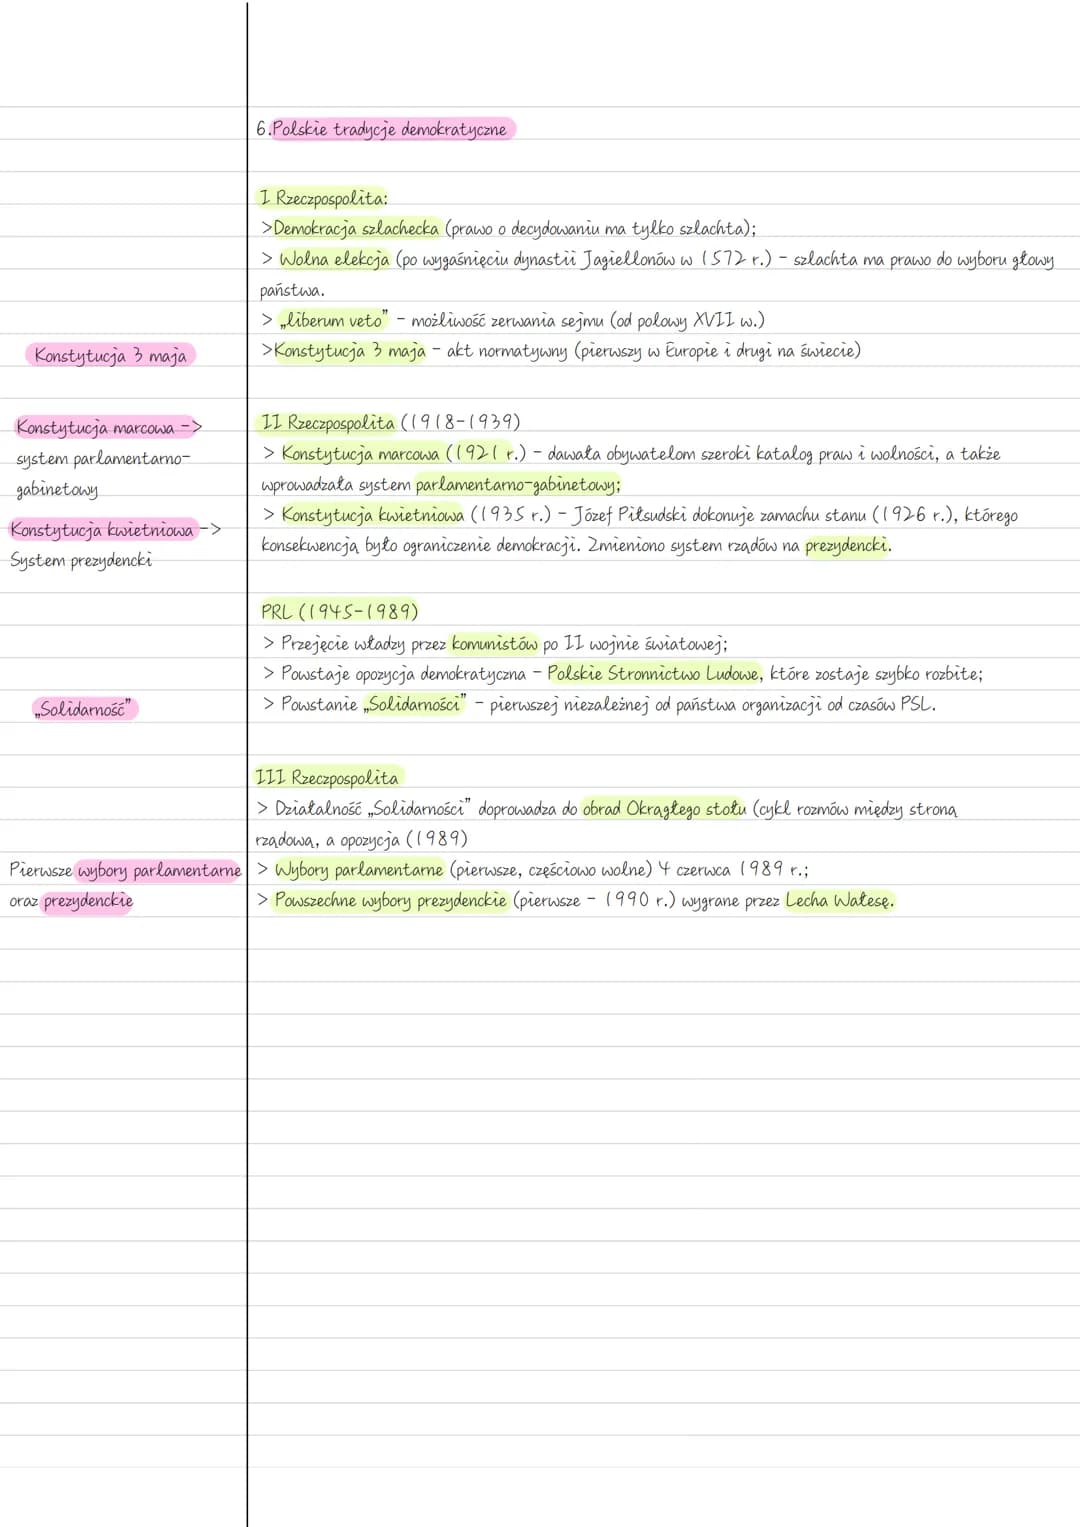 6.Polskie tradycje demokratyczne
I Rzeczpospolita:
>Demokracja szlachecka (prawo o decydowaniu ma tylko szlachta);
> Wolna elekcja (po wygaśnięciu dynastii Jagiellonów w 1572 r.) - szlachta ma prawo do wyboru głowy
państwa.
> „liberum veto” - możliwość zerwania sejmu (od połowy XVII w.)
Konstytucja 3 maja
>Konstytucja 3 maja - akt normatywny (pierwszy w Europie i drugi na świecie)
Konstytucja marcowa ->
system parlamentarno-
gabinetowy
Konstytucja kwietniowa ->
System prezydencki
II Rzeczpospolita (1918-1939)
> Konstytucja marcowa (1921 r.) - dawała obywatelom szeroki katalog praw i wolności, a także
wprowadzała system parlamentarno-gabinetowy;
> Konstytucja kwietniowa (1935 r.) - Józef Piłsudski dokonuje zamachu stanu (1926 r.), którego
konsekwencją było ograniczenie demokracji. Zmieniono system rządów na prezydencki.
PRL (1945-1989)
> Przejęcie władzy przez komunistów po II wojnie światowej;
> Powstaje opozycja demokratyczna - Polskie Stronnictwo Ludowe, które zostaje szybko rozbite;
„Solidarność”
> Powstanie „Solidarności” - pierwszej niezależnej od państwa organizacji od czasów PSL.
III Rzeczpospolita
> Działalność „Solidarności” doprowadza do obrad Okrągłego stołu (cykl rozmów między stroną
rządową, a opozycją (1989)
Pierwsze wybory parlamentarne
oraz prezydenckie
> Wybory parlamentarne (pierwsze, częściowo wolne) 4 czerwca 1989 r.;
> Powszechne wybory prezydenckie (pierwsze - 1990 r.) wygrane przez Lecha Wałesę.